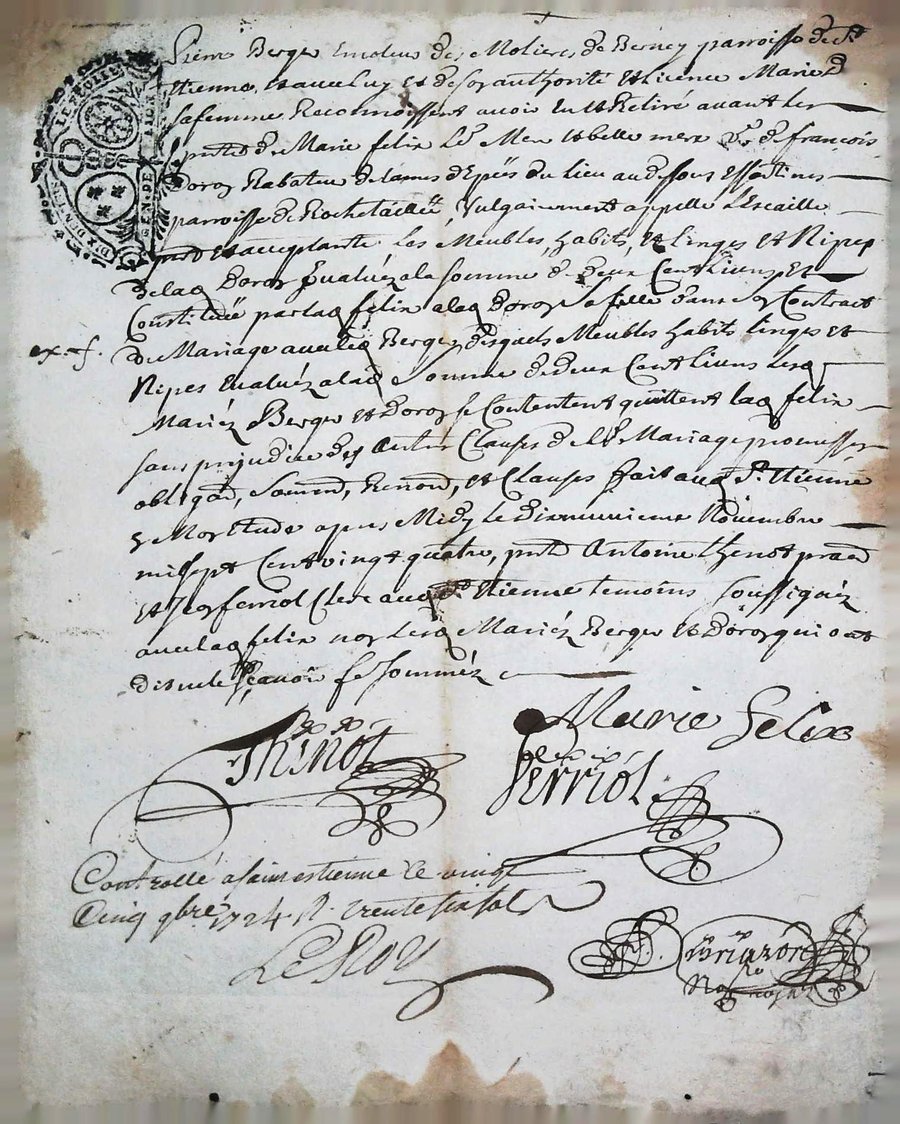 Pierre Berger Emoleur des Molieres de Bernay parroisse de St
Etienne, et avec luy et de son authorité et licence Marie D
sa femme Reconnoissent avoir eu et Retiré avant les
pntes de Marie felix leur Mere et belle mere vve de françois
Doron Rabateur de lames d'Epées du lieu au desous
parroisse de Rochetaillée, vulgairement appellé L'Escaille
pnte et acceptante Les Meubles, habits, et Linges et Nipes
de laq Doron Evaluéz a la somme de Deux Cent Livres, Et
Constitüée par laq felix a laq Doron Sa fille dans son Contract
ex. f.
de Mariage avec led Berger, desquels Meubles habits linges et
Nipes Evaluéz a lad Somme de deux Cent Livres Lesq
Mariéz Berger et Doron se Contentent quittent laq felix
sans prejudice des Autres Clauses de leur Mariage promesses
obligaõn, Soumõn, Renonõn, et Clauses fait aud St Etienne
Estude apres Midy le Dixneuvieme Novembre
mil sept Cent vingt quatre, pnts Antoine Thenot pratn
et Jean ferriol Clerc aud St Etienne temoins Soussignéz
avec laq felix non lesq Mariéz Berger et Doron qui ont
dit ne le Sçavoir de ce Somméz
Marie felix
Thinot
ferriol
Controllé a saint estienne le vingt
Cinq 9bre 1724 R. trente six sols
LeRoy
Briazon
Nore royal
LE FEUILLE
GEN. DE LYON
DIX DENIERS